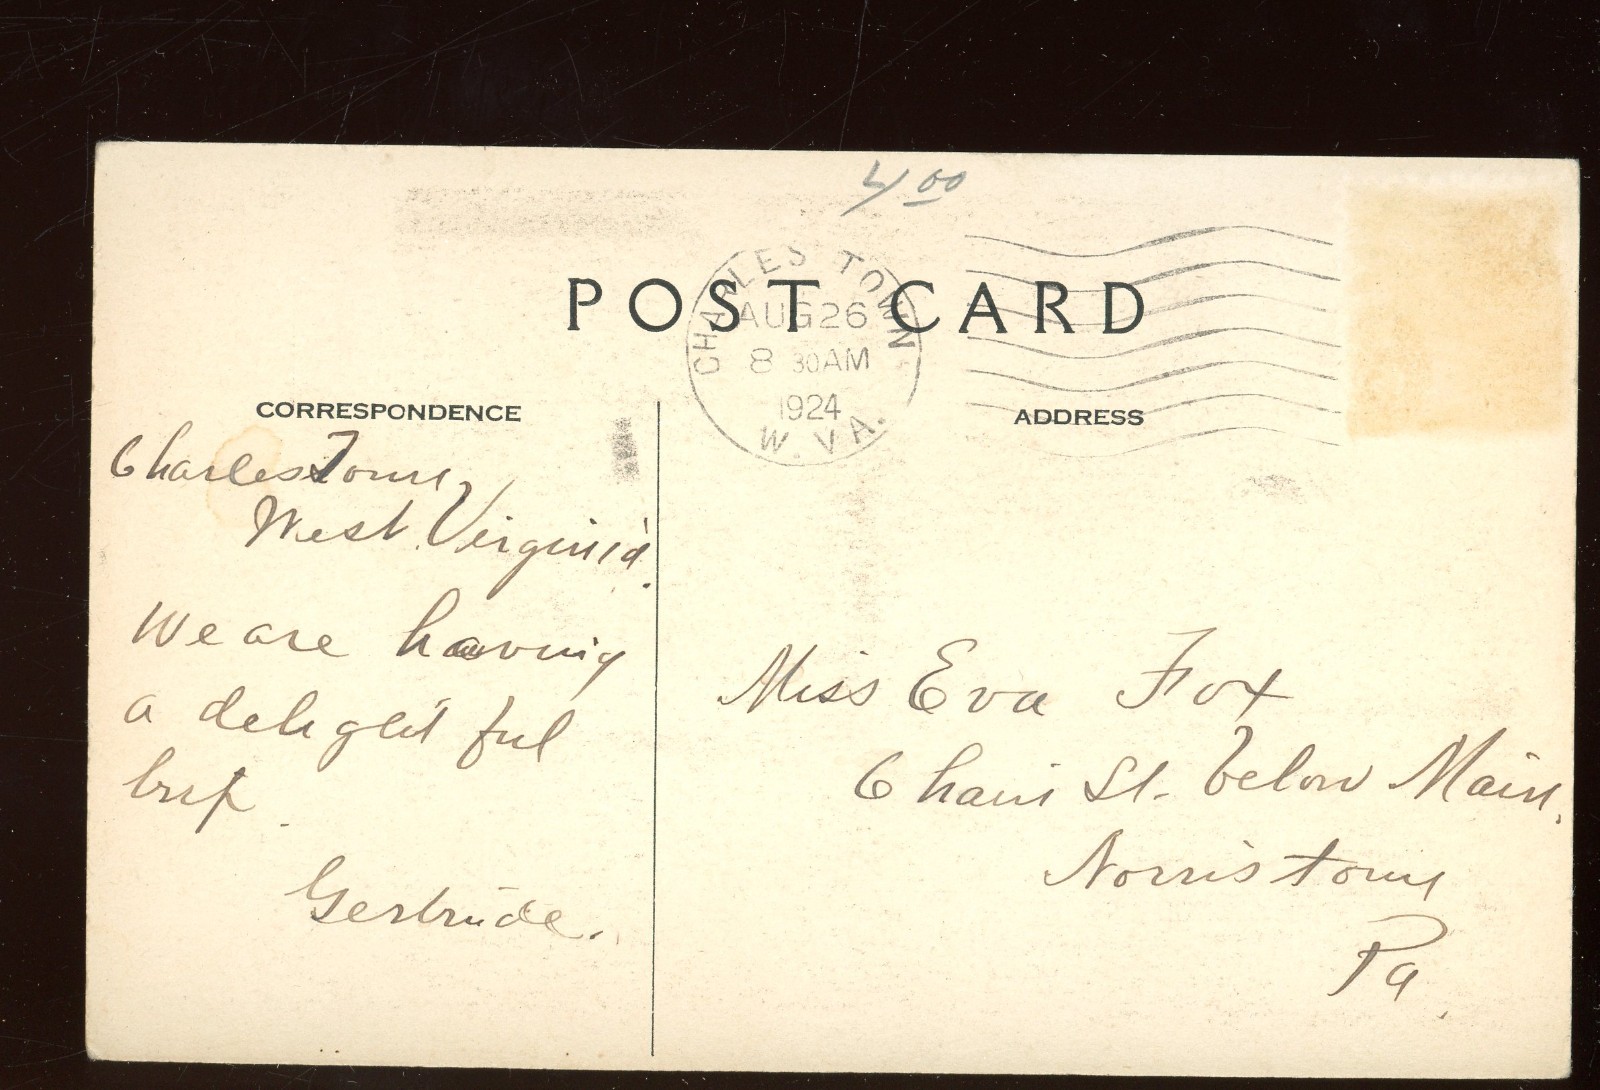 4.00
POST CARD
CHARLES TOWN
AUG 26
8 30AM
1924
W. VA.
CORRESPONDENCE
Charles Town,
West Virginia.
We are having
a delightful
trip.
Gertrude.
ADDRESS
Miss Eva Fox
Chain St. below Main,
Norristown
Pa.